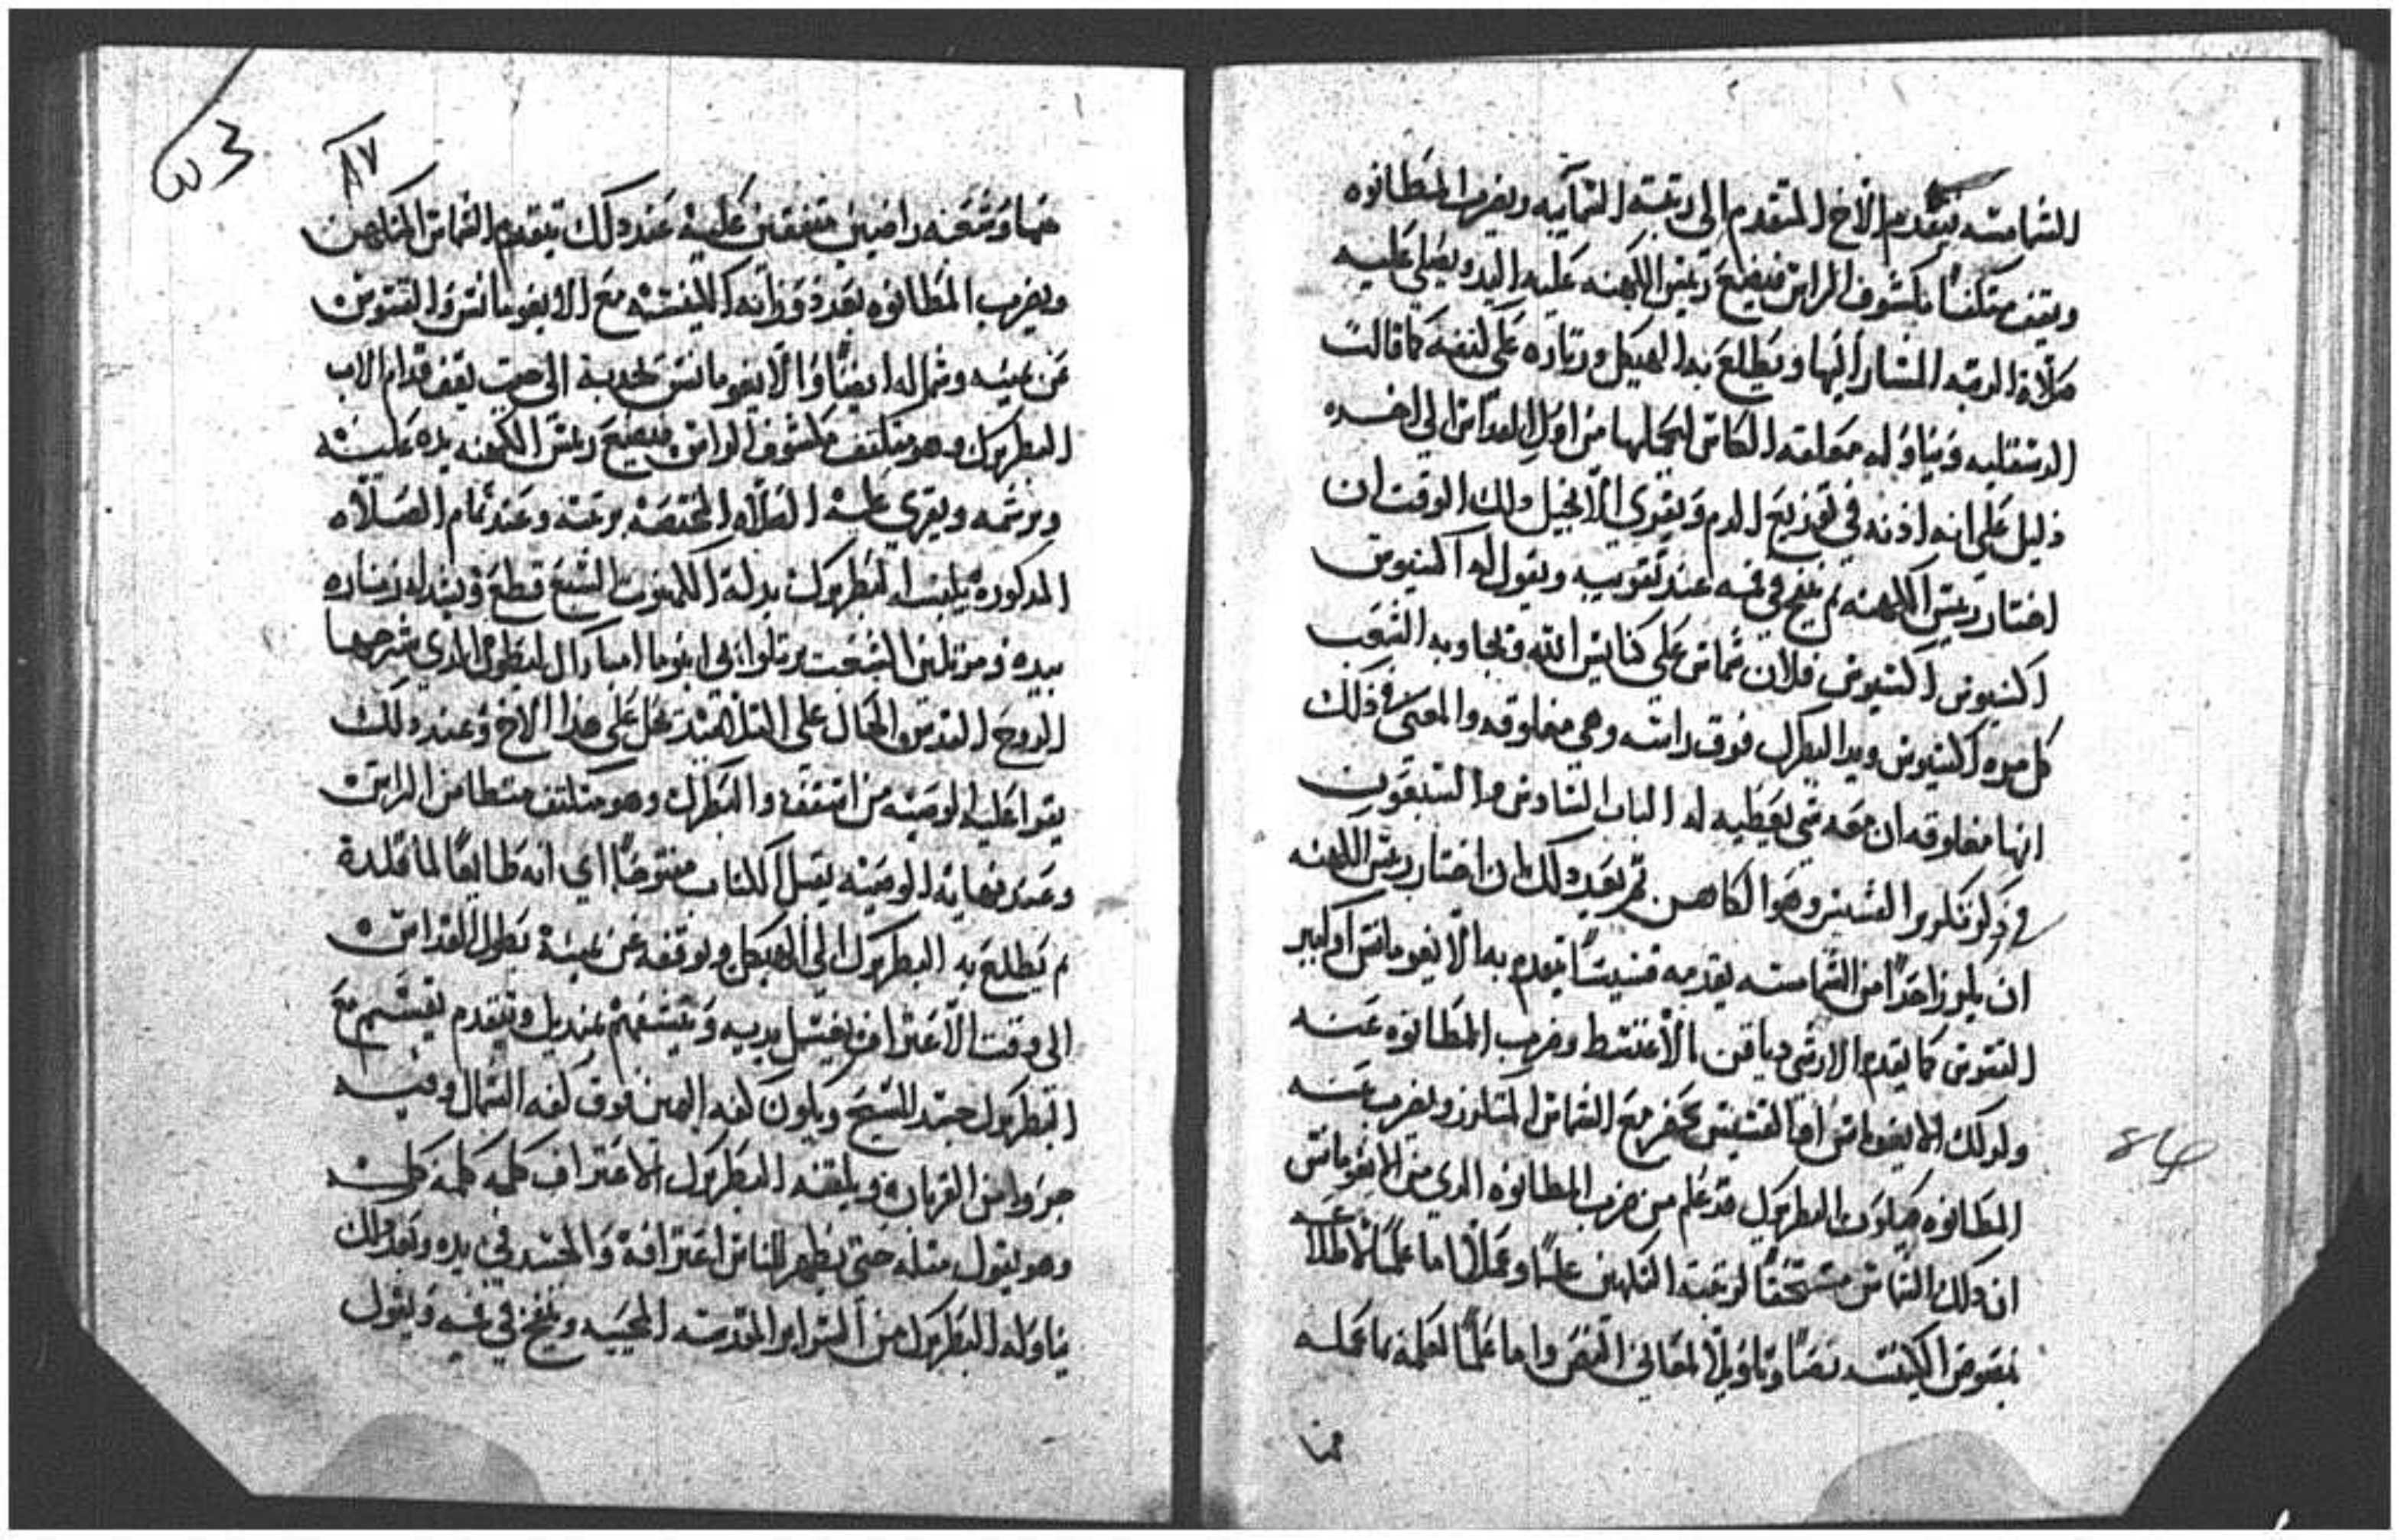 الشمامسه يتقدم الاخ المتقدم الى رتبته التمآنيه ويضرب المطانوه
ويقف متكتفا مكشوف الراس فيضع رييس الكهنه عليه اليد ويصلي عليه
صلاة الرتبه المشار اليها ويطلع به الهيكل وزناره على كتفه كما قالت
الدسقليه ويناوله معلقة الكاس ليحملها من اول القداس الى اخره
دليل على انه اذنه في توزيع الدم ويقري الانجيل دلك الوقت ان
اختار رييس الكهنه ثم ينفخ في فمه عند تقريبه ويقول له اكسيوس
اكسيوس اكسيوس فلان شماس على كنايس الله وتجاوبه الشعب
كل مره اكسيوس ويد البطرك فوق راسه وهي مغلوقه والمعنى في ذلك
انها مغلوقه ان معه شي يعطيه له الباب السادس والسبعون
في ذكر تكريز القسيس وهو الكاهن ثم بعد دلك ان اختار رييس الكهنه
ان يكرز احدا من الشمامسه يقدمه قسيسا يتقدم به الايغومانس او كبير
القسوس كما يقدم الارشي دياقن الاغنسط وضرب المطانوه عنه
ولدلك الايغومانس او القسيس يحضر مع الشماس المتكرز ويضرب عنه
المطانوه فيكون البطريرك قد علم من ضرب المطانوه الدي من الايغومانس
ان دلك الشماس مستحقا لرتبة التكهين علما وعملا اما علما لاطلاعه
بنصوص الكنيسه نصا وتاويلا لمعاني النص واما عملا لعلمه بما عمله
فمنا
٨٧
منها وشعبه راضيين متفقين عليه عند دلك يتقدم الشماس المتكهن
ويضرب المطانوه بعدد وزانه الكنيسه مع الايغومانس والقسوس
عن يمينه وشماله ايضا والايغومانس تحديه الى حيت يقف قدام الاب
البطريرك وهو متكتف مكشوف الراس فيضع رييس الكهنه يده عليه
ويرشمه ويقري عليه الصلاه المختصه برتبته وعند تمام الصلاه
المدكوره يلبسه البطريرك بدلة الكهنوت السبع قطع ويشد له زناره
بيده ومرتلين الشعب يرتلوا الدي شرحها
الروح القدس الحال على التلاميد يحل على هدا الاخ وعند دلك
يقرا عليه الوصيه من اسقف والبطرك وهو متكتف متطامن الراس
وعند نهاية الوصيه يقبل الكتاب مفتوحا اي انه طايعا لما قلده
ثم يطلع به البطريرك الى الهيكل ويوقفه عن يمينه بطول القداس
الى وقت الاعتراف يغسل يديه وينشفهم بمنديل ويتقدم يقسم مع
البطريرك جسد المسيح ويكون كفه اليمين فوق كفه الشمال وفيه
جزوا من القربان ويلقنه البطريرك الاعتراف كلمه كلمه
وهو يقول متله حتى يظهر للناس اعترافه والجسد في يده وبعد دلك
يناوله البطريرك من السراير المقدسه المحييه وينفخ في فمه ويقول